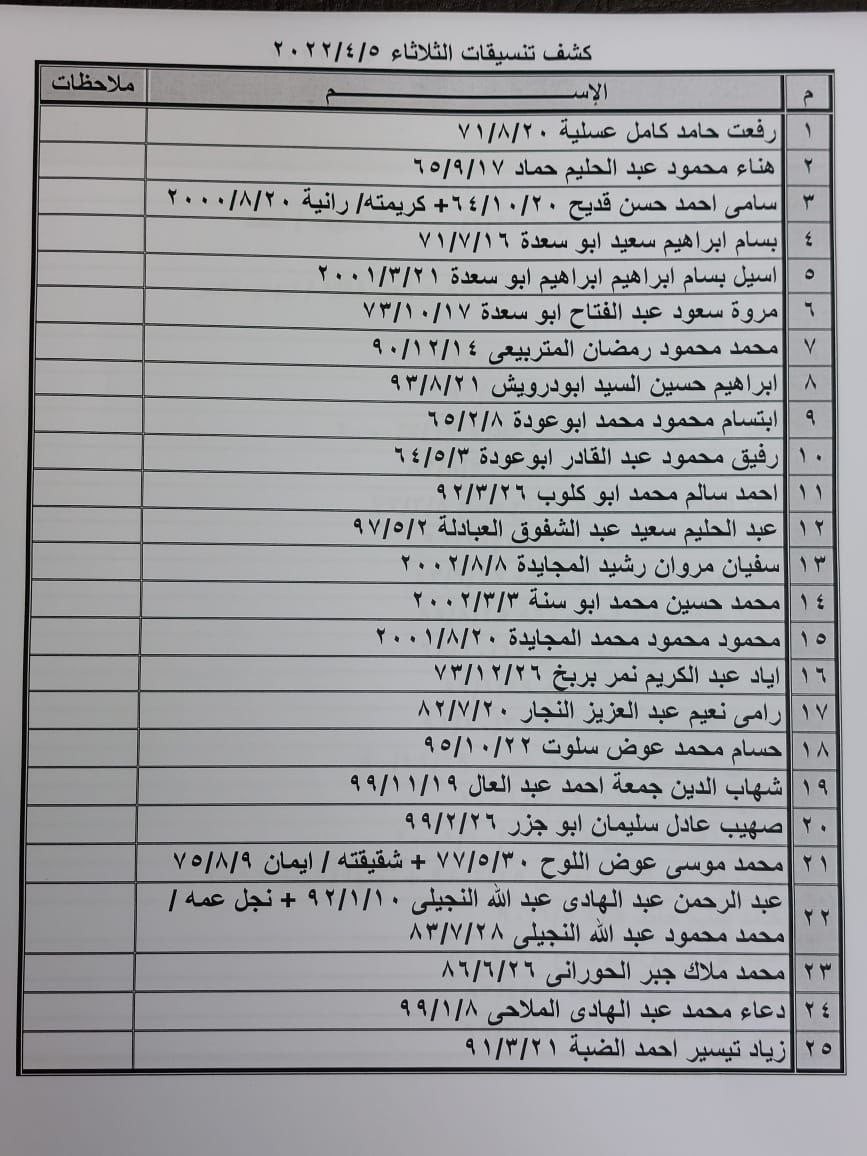 كشف تنسيقات الثلاثاء ٢٠٢٢/٤/٥
م الإســـــــــــم ملاحظات
١ رفعت حامد كامل عسلية ٧١/٨/٢٠
٢ هناء محمود عبد الحليم حماد ٦٥/٩/١٧
٣ سامى احمد حسن قديح ٦٤/١٠/٢٠+ كريمته/ رانية ٢٠٠٠/٨/٢٠
٤ بسام ابراهيم سعيد ابو سعدة ٧١/٧/١٦
٥ اسيل بسام ابراهيم ابراهيم ابو سعدة ٢٠٠١/٣/٢١
٦ مروة سعود عبد الفتاح ابو سعدة ٧٣/١٠/١٧
٧ محمد محمود رمضان المتربيعى ٩٠/١٢/١٤
٨ ابراهيم حسين السيد ابودرويش ٩٣/٨/٢١
٩ ابتسام محمود محمد ابوعودة ٦٥/٢/٨
١٠ رفيق محمود عبد القادر ابوعودة ٦٤/٥/٣
١١ احمد سالم محمد ابو كلوب ٩٢/٣/٢٦
١٢ عبد الحليم سعيد عبد الشفوق العبادلة ٩٧/٥/٢
١٣ سفيان مروان رشيد المجايدة ٢٠٠٢/٨/٨
١٤ محمد حسين محمد ابو سنة ٢٠٠٢/٣/٣
١٥ محمود محمود محمد المجايدة ٢٠٠١/٨/٢٠
١٦ اياد عبد الكريم نمر بربخ ٧٣/١٢/٢٦
١٧ رامى نعيم عبد العزيز النجار ٨٢/٧/٢٠
١٨ حسام محمد عوض سلوت ٩٥/١٠/٢٢
١٩ شهاب الدين جمعة احمد عبد العال ٩٩/١١/١٩
٢٠ صهيب عادل سليمان ابو جزر ٩٩/٢/٢٦
٢١ محمد موسى عوض اللوح ٧٧/٥/٣٠ + شقيقته / ايمان ٧٥/٨/٩
٢٢ عبد الرحمن عبد الهادى عبد الله النجيلى ٩٢/١/١٠ + نجل عمه /
محمد محمود عبد الله النجيلى ٨٣/٧/٢٨
٢٣ محمد ملاك جبر الحورانى ٨٦/٦/٢٦
٢٤ دعاء محمد عبد الهادى الملاحى ٩٩/١/٨
٢٥ زياد تيسير احمد الضبة ٩١/٣/٢١